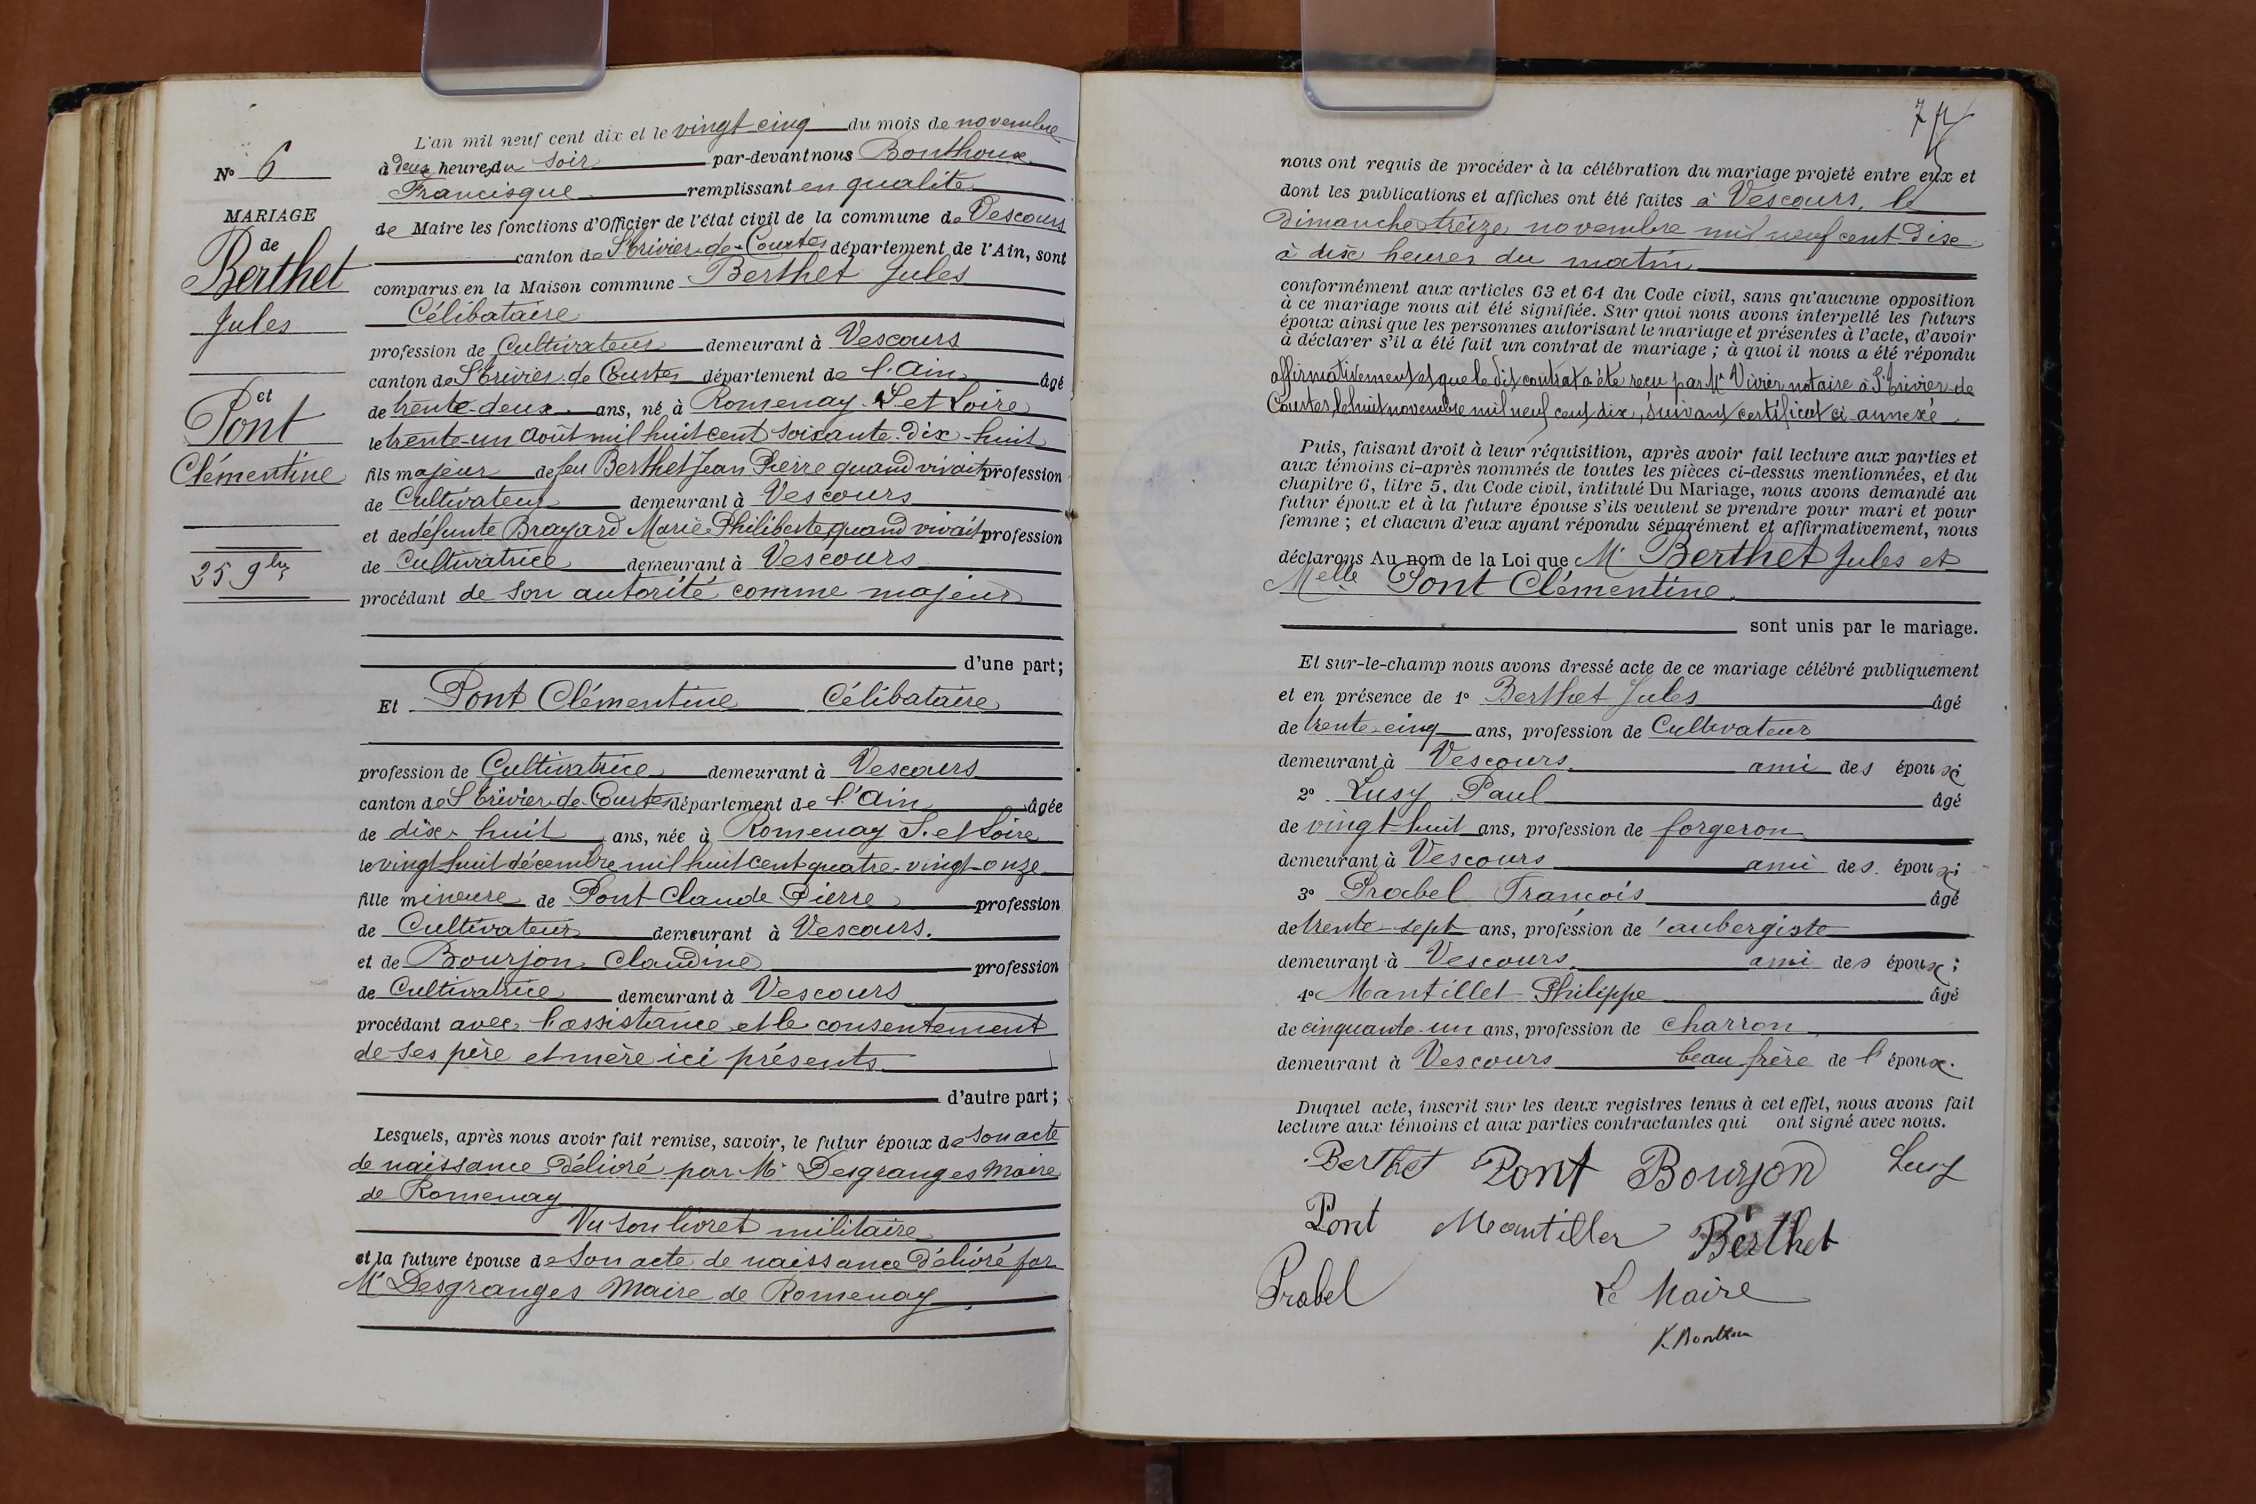 N° 6
MARIAGE
de
Berthet
Jules
et
Pont
Clémentine
25 9bre
L'an mil neuf cent dix et le vingt cinq du mois de novembre
à deux heures du soir par-devant nous Bonthoux
Francisque remplissant en qualité
de Maire les fonctions d'Officier de l'état civil de la commune de Vescours
canton de St Trivier-de-Courtes département de l'Ain, sont
comparus en la Maison commune Berthet Jules
Célibataire
profession de Cultivateur demeurant à Vescours
canton de St Trivier-de-Courtes département de l'Ain âgé
de trente-deux ans, né à Romenay S. et Loire
le trente-un août mil huit cent soixante-dix-huit
fils majeur de feu Berthet Jean Pierre quand vivait profession
de Cultivateur demeurant à Vescours
et de défunte Brayard Marie-Philiberte quand vivait profession
de Cultivatrice demeurant à Vescours
procédant de son autorité comme majeur
d'une part;
Et Pont Clémentine Célibataire
profession de Cultivatrice demeurant à Vescours
canton de St Trivier-de-Courtes département de l'Ain âgée
de dix-huit ans, née à Romenay S. et Loire
le vingt huit décembre mil huit cent quatre-vingt-onze
fille mineure de Pont Claude Pierre profession
de Cultivateur demeurant à Vescours.
et de Bourjon Claudine profession
de Cultivatrice demeurant à Vescours
procédant avec l'assistance et le consentement
de ses père et mère ici présents
d'autre part;
Lesquels, après nous avoir fait remise, savoir, le futur époux de son acte
de naissance délivré par Mr Desgranges Maire
de Romenay
Vu son livret militaire
et la future épouse de son acte de naissance délivré par
Mr Desgranges Maire de Romenay
nous ont requis de procéder à la célébration du mariage projeté entre eux et
dont les publications et affiches ont été faites à Vescours, le
dimanche treize novembre mil neuf cent dix
à dix heures du matin
conformément aux articles 63 et 64 du Code civil, sans qu'aucune opposition
à ce mariage nous ait été signifiée. Sur quoi nous avons interpellé les futurs
époux ainsi que les personnes autorisant le mariage et présentes à l'acte, d'avoir
à déclarer s'il a été fait un contrat de mariage; à quoi il nous a été répondu
affirmativement et que le dit contrat a été reçu par Me Vivier notaire à St Trivier-de
Courtes, le huit novembre mil neuf cent dix, suivant certificat ci-annexé
Puis, faisant droit à leur réquisition, après avoir fait lecture aux parties et
aux témoins ci-après nommés de toutes les pièces ci-dessus mentionnées, et du
chapitre 6, titre 5, du Code civil, intitulé Du Mariage, nous avons demandé au
futur époux et à la future épouse s'ils veulent se prendre pour mari et pour
femme; et chacun d'eux ayant répondu séparément et affirmativement, nous
déclarons Au nom de la Loi que Mr Berthet Jules et
Melle Pont Clémentine
sont unis par le mariage.
Et sur-le-champ nous avons dressé acte de ce mariage célébré publiquement
et en présence de 1° Berthet Jules âgé
de trente-cinq ans, profession de Cultivateur
demeurant à Vescours ami des époux;
2° Lusy Paul âgé
de vingt huit ans, profession de forgeron
demeurant à Vescours ami des époux;
3° Prabel François âgé
de trente-sept ans, profession de aubergiste
demeurant à Vescours ami des époux;
4° Mantillet Philippe âgé
de cinquante-un ans, profession de charron
demeurant à Vescours beau frère de l'époux.
Duquel acte, inscrit sur les deux registres tenus à cet effet, nous avons fait
lecture aux témoins et aux parties contractantes qui ont signé avec nous.
Berthet Pont Bourjon Lusy
Pont Mantiller Berthet
Prabel Le Maire